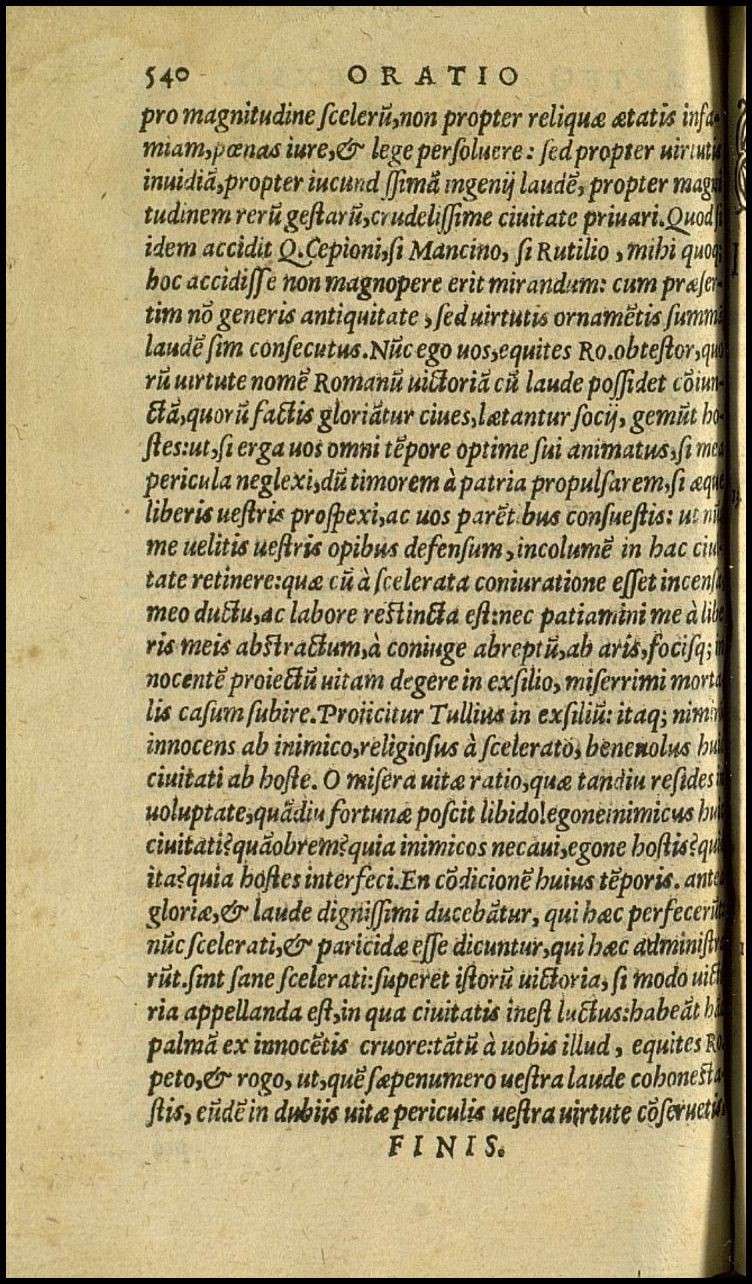 540 ORATIO
pro magnitudine scelerū,non propter reliquæ ætatis infa-
miam,pœnas iure,& lege persoluere: sed propter uirtutis
inuidiā,propter iucund ssimā ingenij laudē, propter mag
tudinem rerū gestarū,crudelissime ciuitate priuari.Quod si
idem accidit Q.Cepioni,si Mancino, si Rutilio , mihi quoq;
hoc accidisse non magnopere erit mirandum: cum præser-
tim nō generis antiquitate , sed uirtutis ornamētis summā
laudē sim consecutus.Nūc ego uos,equites Ro.obtestor,quo
rū uirtute nomē Romanū uictoriā cū laude possidet cōiun-
ctā,quorū factis gloriātur ciues,lætantur socij, gemūt ho-
stes:ut,si erga uos omni tēpore optime fui animatus,si mea
pericula neglexi,dū timorem à patria propulsarem,si æque
liberis uestris prospexi,ac uos parēt bus consuestis: ut nūc
me uelitis uestris opibus defensum, incolumē in hac ciui-
tate retinere:quæ cū à scelerata coniuratione esset incensa
meo ductu,ac labore restincta est:nec patiamini me à libe
ris meis abstractum,à coniuge abreptū,ab aris,focisq; in
nocentē proiectū uitam degere in exsilio, miserrimi morta
lis casum subire.Proiicitur Tullius in exsiliū: itaq; nimirū
innocens ab inimico,religiosus à scelerato, beneuolus huic
ciuitati ab hoste. O misera uitæ ratio,quæ tandiu resides in
uoluptate,quādiu fortunæ poscit libido!egone inimicus huic
ciuitati?quāobrem?quia inimicos necaui,egone hostis?qui
ita?quia hostes interfeci.En cōdicionē huius tēporis. ante
gloriæ,& laude dignissimi ducebātur, qui hæc perfecerūt
nūc scelerati,& paricidæ esse dicuntur,qui hæc administra
rūt.sint sane scelerati:superet istorū uictoria, si modo uicto
ria appellanda est,in qua ciuitatis inest luctus:habeāt hi
palmā ex innocētis cruore:tātū à uobis illud , equites Ro
peto,& rogo, ut,quē sæpenumero uestra laude cohonesta
stis, eūdē in dubiis uitæ periculis uestra uirtute cōseruetis
FINIS.